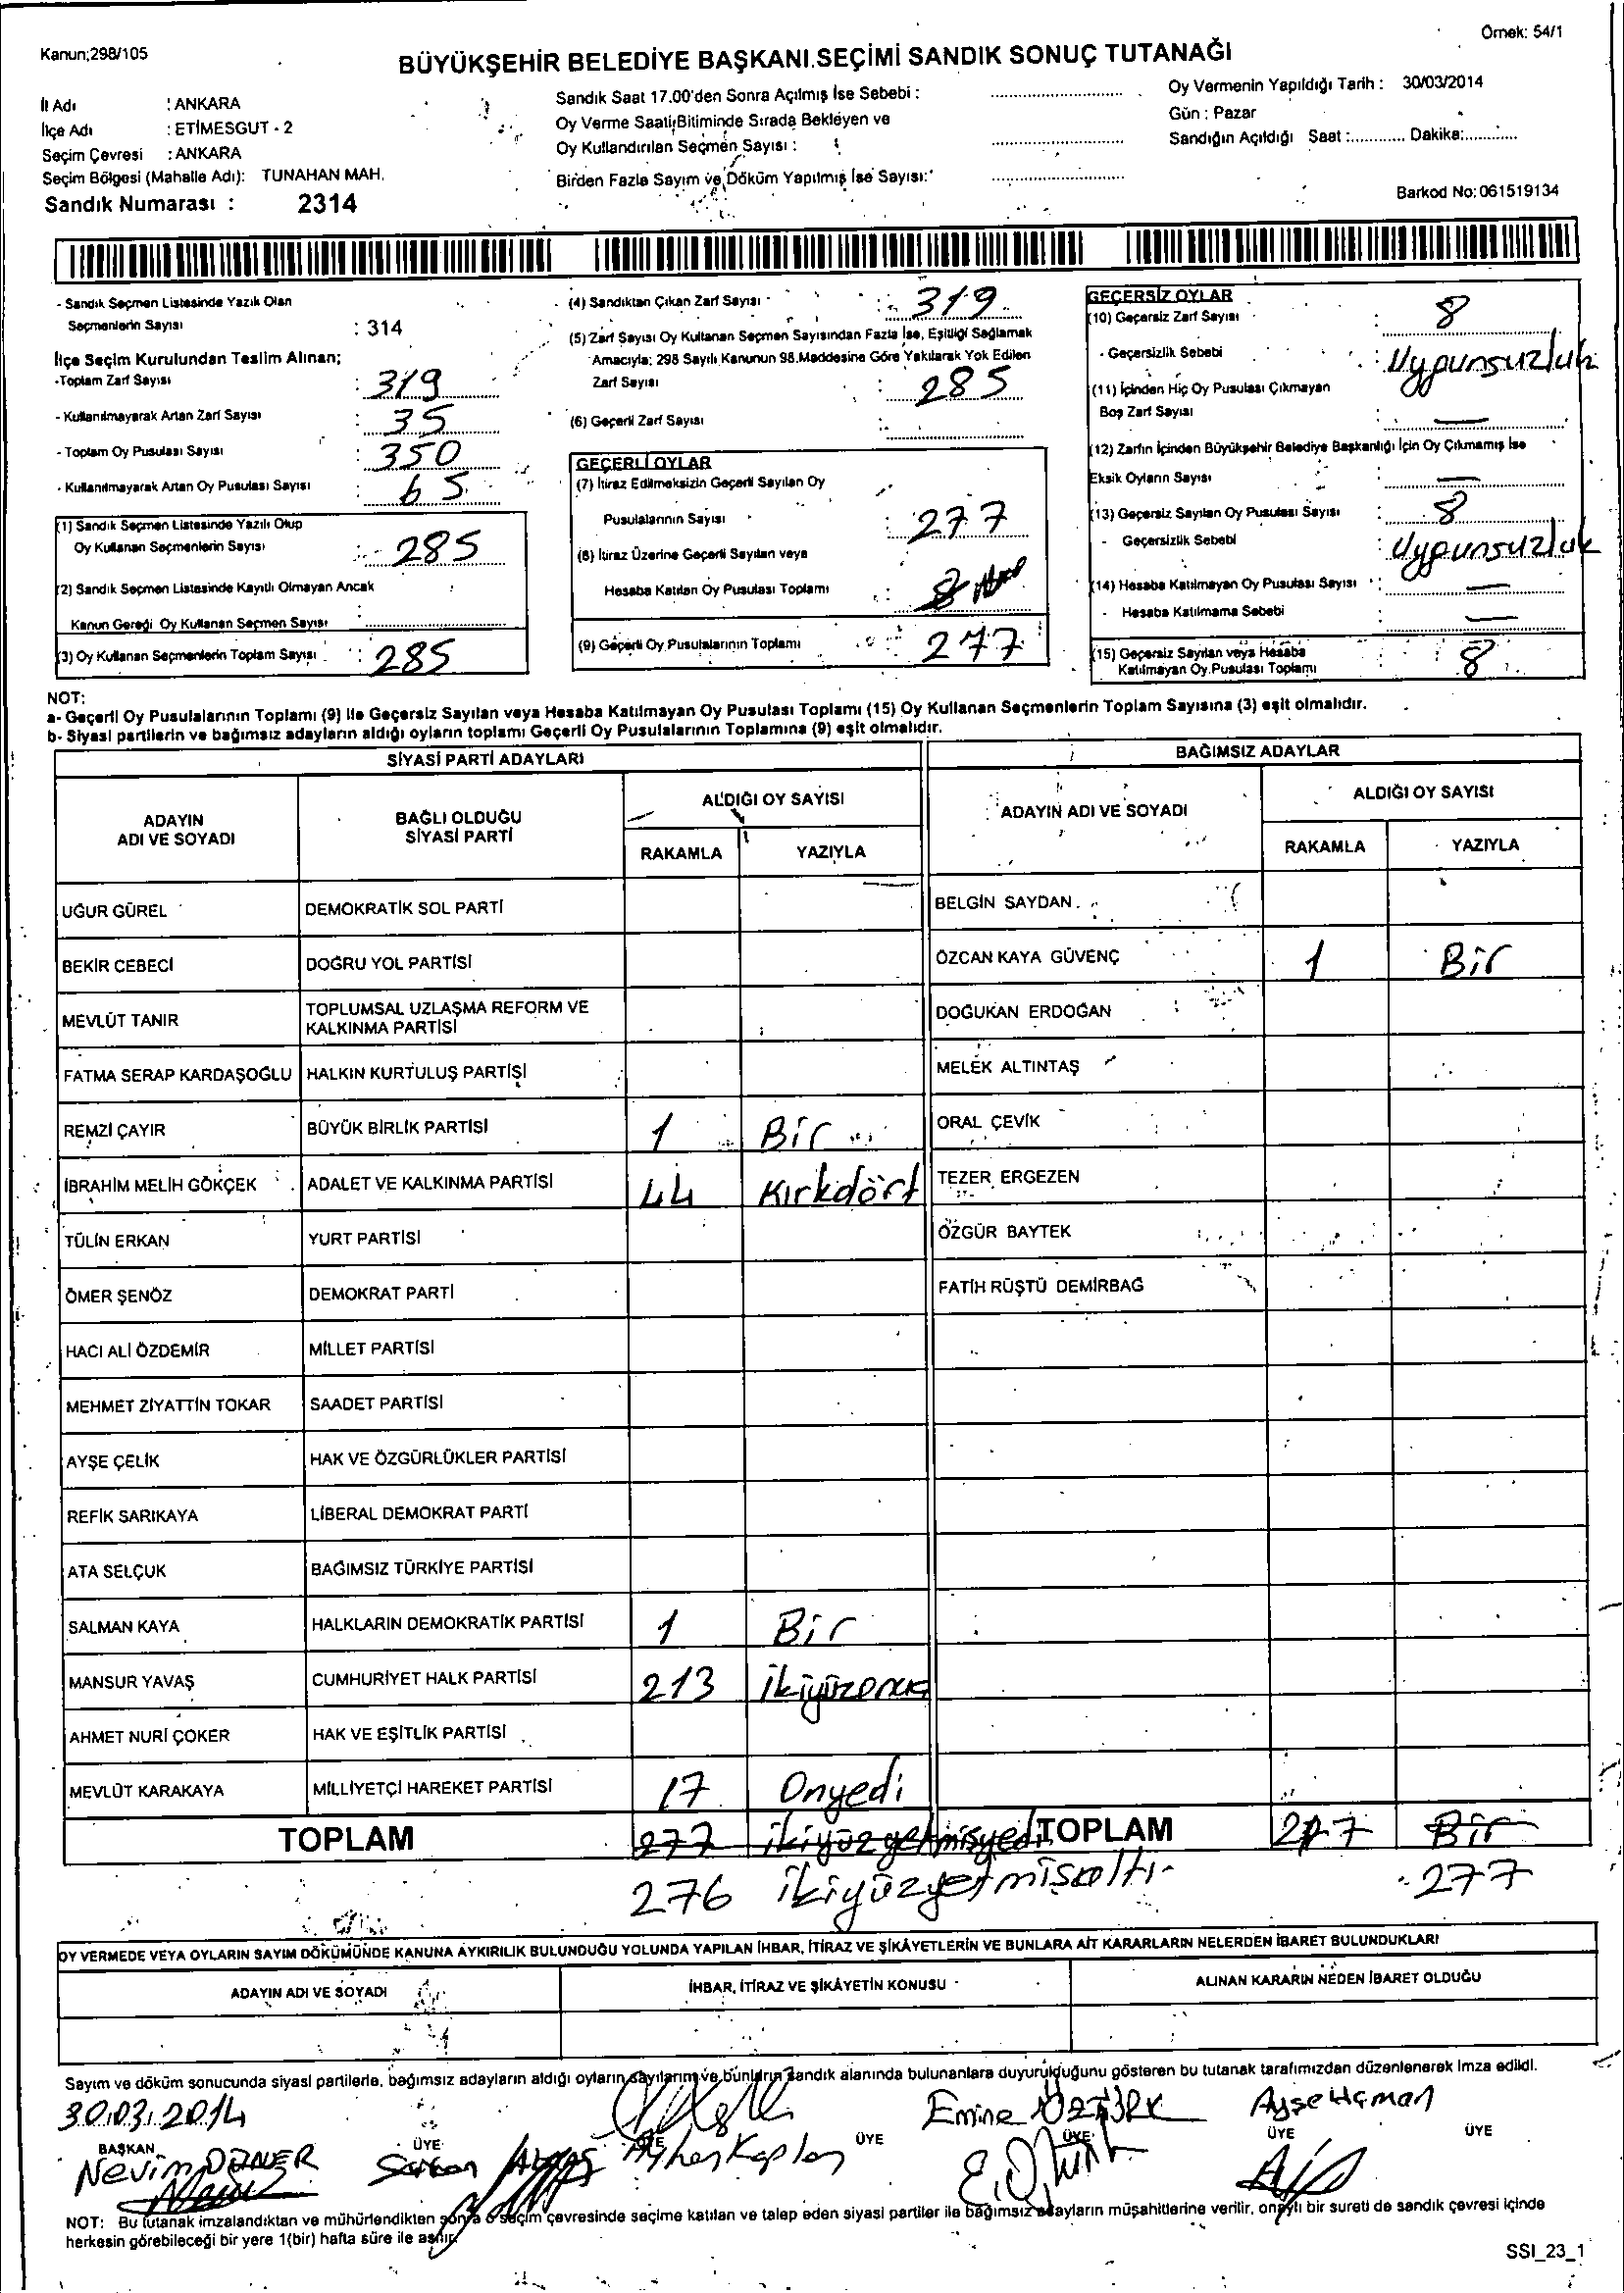 Kanun;298/105
Örnek: 54/1
BÜYÜKŞEHİR BELEDİYE BAŞKANI SEÇİMİ SANDIK SONUÇ TUTANAĞI
İl Adı : ANKARA
İlçe Adı : ETİMESGUT - 2
Seçim Çevresi : ANKARA
Seçim Bölgesi (Mahalle Adı): TUNAHAN MAH.
Sandık Numarası : 2314
Sandık Saat 17.00'den Sonra Açılmış İse Sebebi :
Oy Verme Saati Bitiminde Sırada Bekleyen ve
Oy Kullandırılan Seçmen Sayısı :
Birden Fazla Sayım ve Döküm Yapılmış İse Sayısı:
Oy Vermenin Yapıldığı Tarih : 30/03/2014
Gün : Pazar
Sandığın Açıldığı Saat :............ Dakika:............
Barkod No: 061519134
- Sandık Seçmen Listesinde Yazılı Olan
Seçmenlerin Sayısı : 314
İlçe Seçim Kurulundan Teslim Alınan;
-Toplam Zarf Sayısı : 319
- Kullanılmayarak Artan Zarf Sayısı : 35
- Toplam Oy Pusulası Sayısı : 350
- Kullanılmayarak Artan Oy Pusulası Sayısı : 65
(1) Sandık Seçmen Listesinde Yazılı Olup
Oy Kullanan Seçmenlerin Sayısı : 285
(2) Sandık Seçmen Listesinde Kayıtlı Olmayan Ancak
Kanun Gereği Oy Kullanan Seçmen Sayısı :
(3) Oy Kullanan Seçmenlerin Toplam Sayısı : 285
(4) Sandıktan Çıkan Zarf Sayısı : 319
(5) Zarf Sayısı Oy Kullanan Seçmen Sayısından Fazla İse, Eşitliği Sağlamak
Amacıyla; 298 Sayılı Kanunun 98.Maddesine Göre Yakılarak Yok Edilen
Zarf Sayısı : 285
(6) Geçerli Zarf Sayısı :
GEÇERLİ OYLAR
(7) İtiraz Edilmeksizin Geçerli Sayılan Oy
Pusulalarının Sayısı : 277
(8) İtiraz Üzerine Geçerli Sayılan veya
Hesaba Katılan Oy Pusulası Toplamı : 8
(9) Geçerli Oy Pusulalarının Toplamı : 277
GEÇERSİZ OYLAR
(10) Geçersiz Zarf Sayısı : 8
- Geçersizlik Sebebi : Uygunsuzluk
(11) İçinden Hiç Oy Pusulası Çıkmayan
Boş Zarf Sayısı : —
(12) Zarfın İçinden Büyükşehir Belediye Başkanlığı İçin Oy Çıkmamış İse
Eksik Oyların Sayısı : —
(13) Geçersiz Sayılan Oy Pusulası Sayısı : 8
- Geçersizlik Sebebi : Uygunsuzluk
(14) Hesaba Katılmayan Oy Pusulası Sayısı : —
- Hesaba Katılmama Sebebi : —
(15) Geçersiz Sayılan veya Hesaba
Katılmayan Oy Pusulası Toplamı : 8
NOT:
a- Geçerli Oy Pusulalarının Toplamı (9) ile Geçersiz Sayılan veya Hesaba Katılmayan Oy Pusulası Toplamı (15) Oy Kullanan Seçmenlerin Toplam Sayısına (3) eşit olmalıdır.
b- Siyasi partilerin ve bağımsız adayların aldığı oyların toplamı Geçerli Oy Pusulalarının Toplamına (9) eşit olmalıdır.
SİYASİ PARTİ ADAYLARI
ADAYIN ADI VE SOYADI
BAĞLI OLDUĞU SİYASİ PARTİ
ALDIĞI OY SAYISI
RAKAMLA YAZIYLA
UĞUR GÜREL DEMOKRATİK SOL PARTİ
BEKİR CEBECİ DOĞRU YOL PARTİSİ
MEVLÜT TANIR TOPLUMSAL UZLAŞMA REFORM VE
KALKINMA PARTİSİ
FATMA SERAP KARDAŞOĞLU HALKIN KURTULUŞ PARTİSİ
REMZİ ÇAYIR BÜYÜK BİRLİK PARTİSİ 1 Bir
İBRAHİM MELİH GÖKÇEK ADALET VE KALKINMA PARTİSİ 44 Kırkdört
TÜLİN ERKAN YURT PARTİSİ
ÖMER ŞENÖZ DEMOKRAT PARTİ
HACI ALİ ÖZDEMİR MİLLET PARTİSİ
MEHMET ZİYATTİN TOKAR SAADET PARTİSİ
AYŞE ÇELİK HAK VE ÖZGÜRLÜKLER PARTİSİ
REFİK SARIKAYA LİBERAL DEMOKRAT PARTİ
ATA SELÇUK BAĞIMSIZ TÜRKİYE PARTİSİ
SALMAN KAYA HALKLARIN DEMOKRATİK PARTİSİ 1 Bir
MANSUR YAVAŞ CUMHURİYET HALK PARTİSİ 213 ikiyüzonüç
AHMET NURİ ÇOKER HAK VE EŞİTLİK PARTİSİ
MEVLÜT KARAKAYA MİLLİYETÇİ HAREKET PARTİSİ 17 Onyedi
TOPLAM 277 ikiyüzyetmişyedi
276 ikiyüzyetmişaltı
BAĞIMSIZ ADAYLAR
ADAYIN ADI VE SOYADI
ALDIĞI OY SAYISI
RAKAMLA YAZIYLA
BELGİN SAYDAN
ÖZCAN KAYA GÜVENÇ 1 Bir
DOĞUKAN ERDOĞAN
MELEK ALTINTAŞ
ORAL ÇEVİK
TEZER ERGEZEN
ÖZGÜR BAYTEK
FATİH RÜŞTÜ DEMİRBAĞ
TOPLAM 277 Bir
277
OY VERMEDE VEYA OYLARIN SAYIM DÖKÜMÜNDE KANUNA AYKIRILIK BULUNDUĞU YOLUNDA YAPILAN İHBAR, İTİRAZ VE ŞİKÂYETLERİN VE BUNLARA AİT KARARLARIN NELERDEN İBARET BULUNDUKLARI
ADAYIN ADI VE SOYADI
İHBAR, İTİRAZ VE ŞİKÂYETİN KONUSU
ALINAN KARARIN NEDEN İBARET OLDUĞU
Sayım ve döküm sonucunda siyasi partilerle, bağımsız adayların aldığı oyların sayılarını ve bunların sandık alanında bulunanlara duyurulduğunu gösteren bu tutanak tarafımızdan düzenlenerek imza edildi.
30.03.2014
Emine ÖZTÜRK
BAŞKAN ÜYE ÜYE ÜYE ÜYE ÜYE ÜYE
Nevim DÖNER
Ayhan Kaplan
NOT: Bu tutanak imzalandıktan ve mühürlendikten sonra o seçim çevresinde seçime katılan ve talep eden siyasi partiler ile bağımsız adayların müşahitlerine verilir, onaylı bir sureti de sandık çevresi içinde
herkesin görebileceği bir yere 1(bir) hafta süre ile asılır.
SSI_23_1